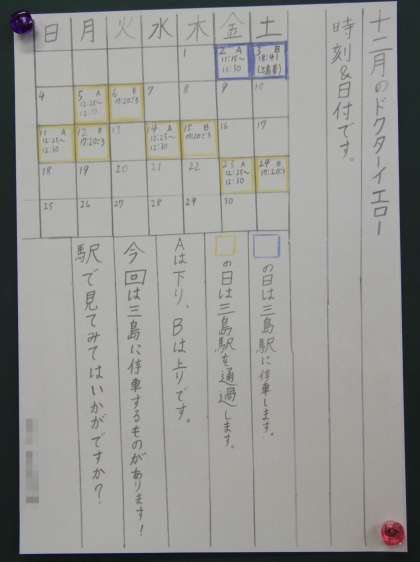 十二月のドクターイエロー
時刻&日付です。
日 月 火 水 木 金 土
1 2 A 3 B
11:15〜 18:41
11:30
4 5 A 6 B 7 8 9 10
12:25〜 17:20ごろ
11 A 12 B 13 14 A 15 B 16 17
12:25〜 17:20ごろ 12:25〜 17:20ごろ
12:30 12:30
18 19 20 21 22 23 A 24 B
12:25〜 17:20ごろ
12:30
25 26 27 28 29 30
の日は三島駅に停車します。
の日は三島駅を通過します。
Aは下り、Bは上りです。
今回は三島に停車するものがあります!
駅で見てみてはいかがですか?